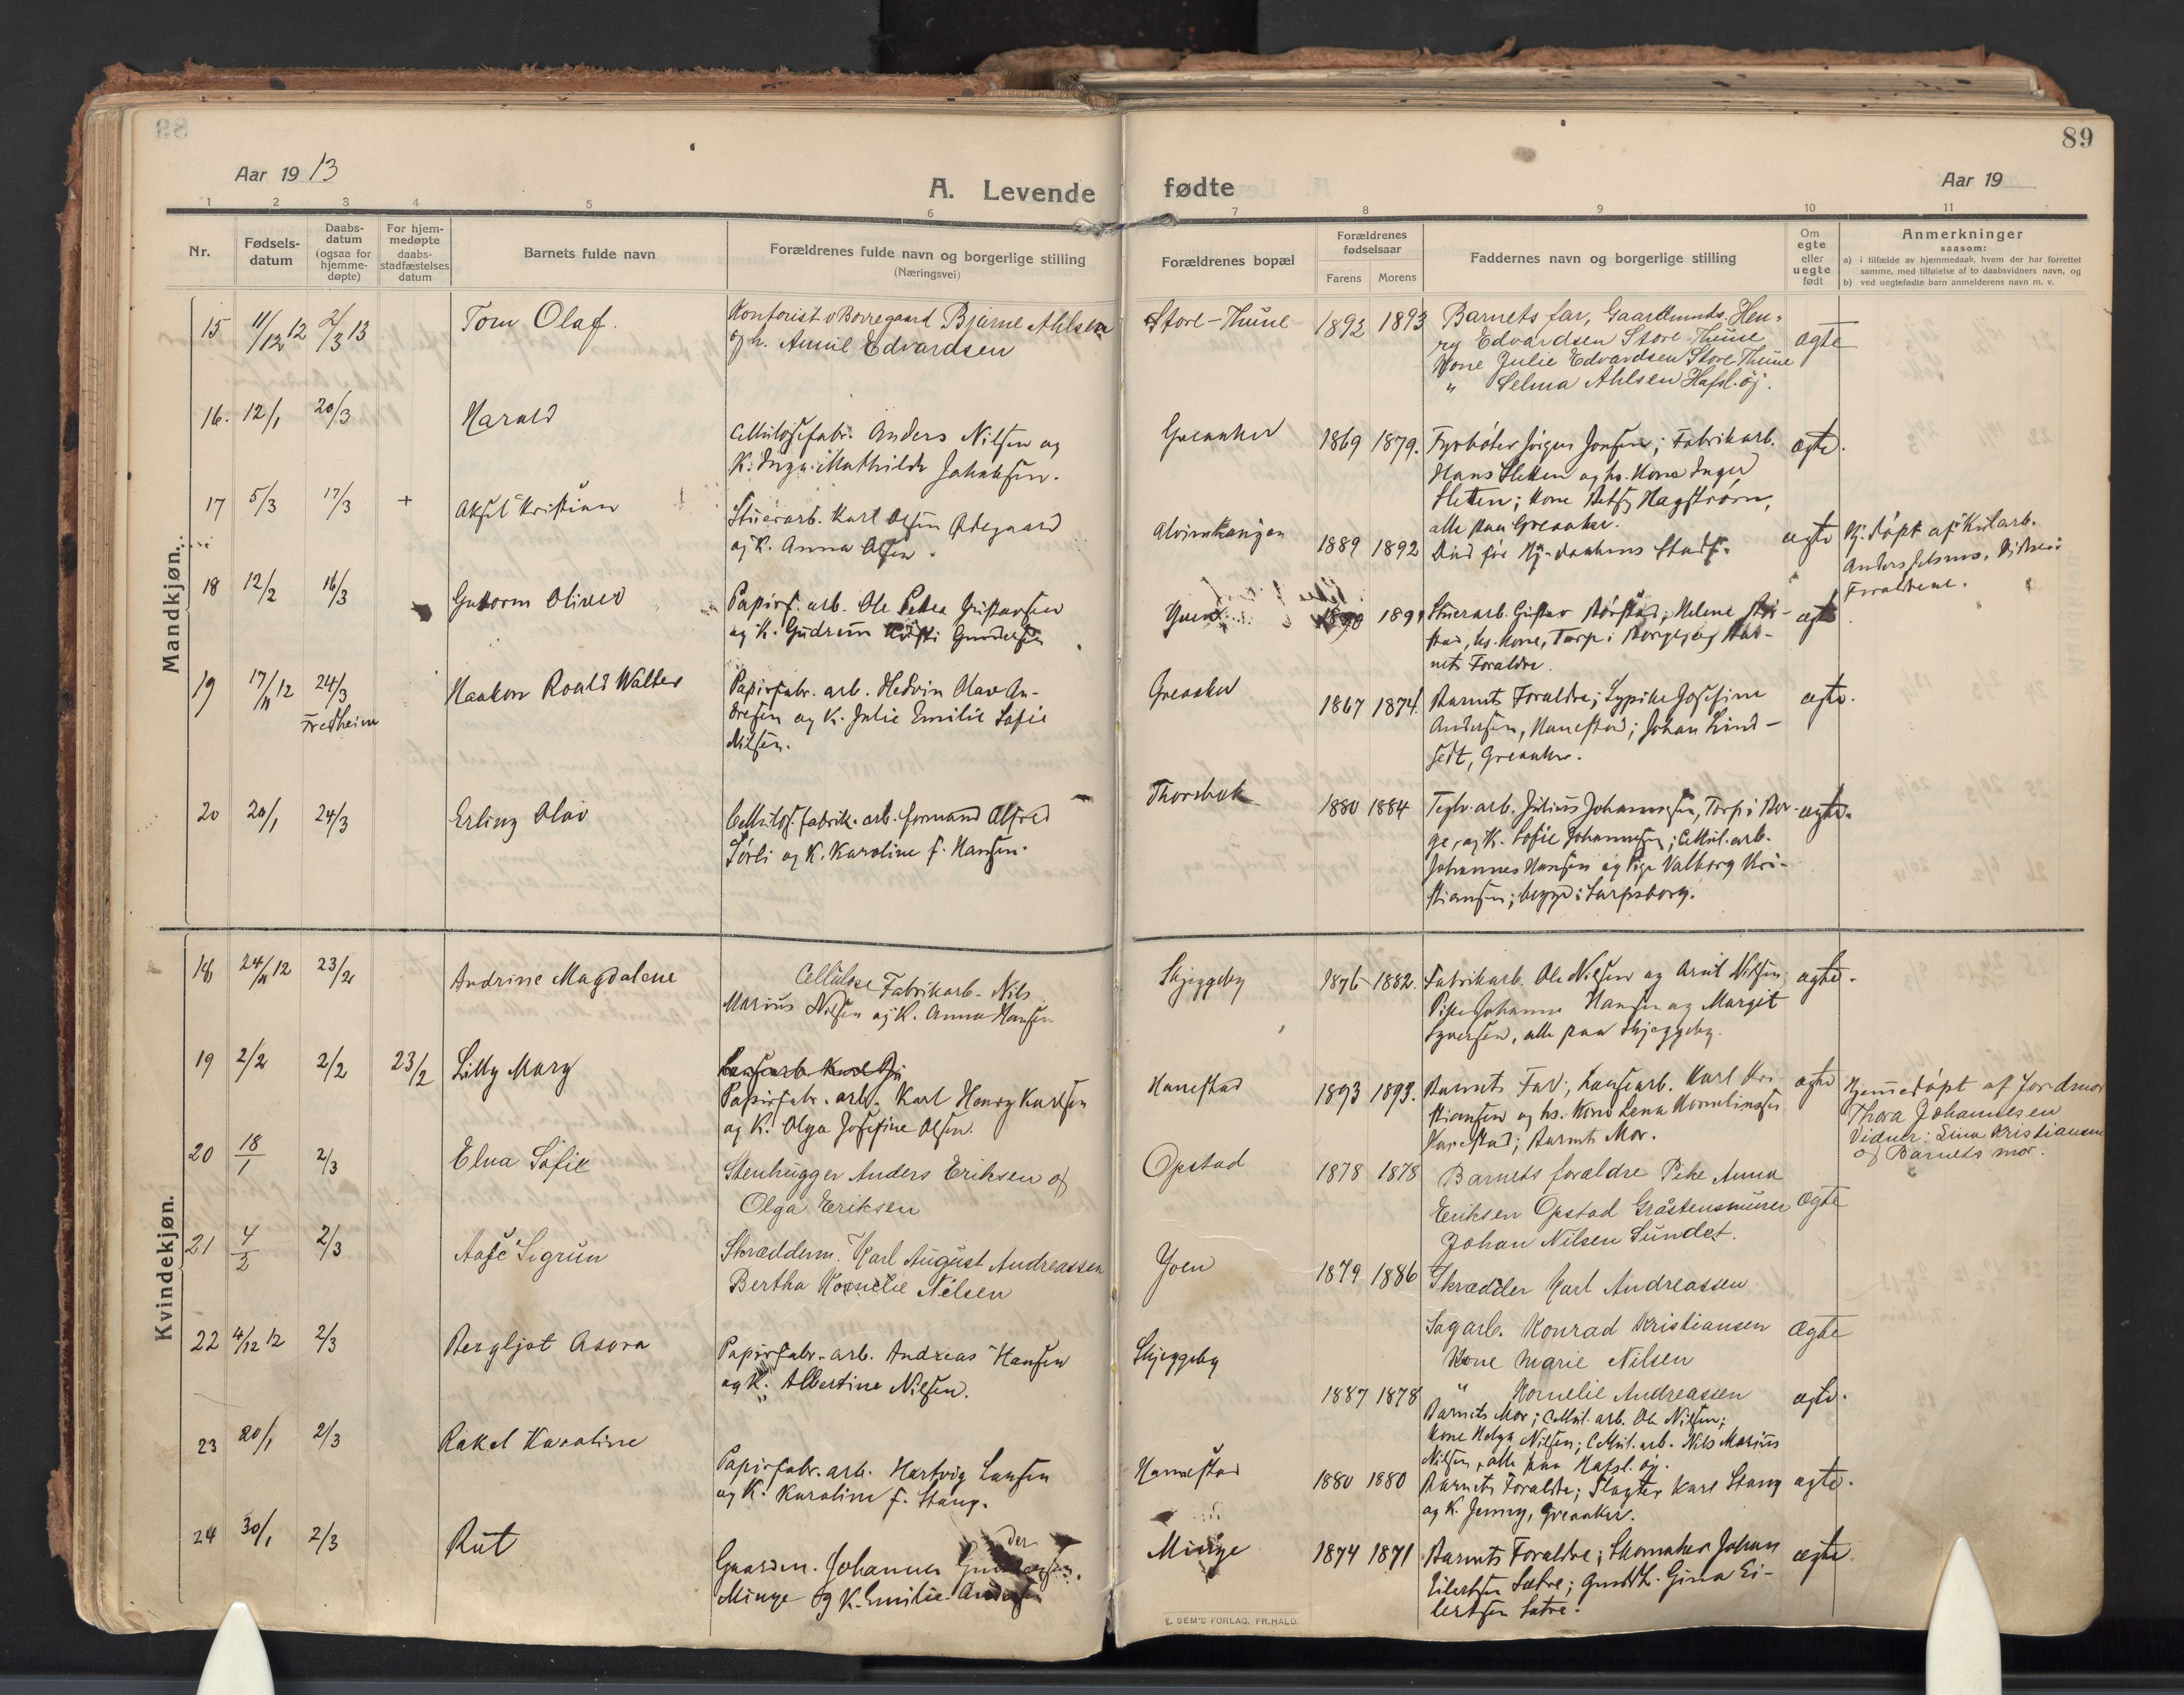 89
Aar 1913
A. Levende fødte
Aar 19
1 2 3 4 5 6 7 8 9 10 11
Nr.
Fødsels-
datum
Daabs-
datum
(ogsaa for
hjemme-
døpte)
For hjem-
medøpte
daabs-
stadfæstelses
datum
Barnets fulde navn
Forældrenes fulde navn og borgerlige stilling
(Næringsvei)
Forældrenes bopæl
Forældrenes
fødselsaar
Farens Morens
Faddernes navn og borgerlige stilling
Om
egte
eller
uegte
født
Anmerkninger
saasom:
a) i tilfælde av hjemmedaab, hvem der har forrettet
samme, med tilføielse af to daabsvidners navn, og
b) ved uegtefødte barn anmelderens navn m. v.
Mandkjøn.
15 11/12 12 2/3 13 Tom Olaf.
Kontorist v Borregaard Bjarne Ahlsen
og h. Edvardsen
Store-Thune 1892 1893
Barnets far, Gaardmands. Hen-
ry Edvardsen Store Thune
Kone Julie Edvardsen Store Thune
" Selma Ahlsen Hafsl. øj.
ægte
16. 12/1 20/3 Harald
Cellulosefabr. Anders Nilsen og
K. Inga Mathilde Jakobsen.
Greaaker 1869 1879.
Fyrbøter Jørgen Jonsen; Fabrikarb.
Hans Sletten og hs. Kone Inger
Sletten; Kone Betsy Hagstrøm,
alle paa Greaaker.
ægte.
17 5/3 17/3 + Aksel Kristian
Stuerarb. Karl Olsen Ødegaard
og K. Anna Olsen.
Alvimhaugen 1889 1892
Død før Hj-daabens Stadf.
ægte
Hj. døpt af Kularb.
Anders Jelsnes. Vidner:
Forældrene.
18 12/2 16/3 Guttorm Oliver
Papirf. arb. Ole Petter Gustavsen
og K. Gudrun Gundersen
1890 1891
Stuerarb. Gustav Børstad; Helene Bør-
stad, hs. Kone, Torp i Borge, og Bar-
nets Forældre.
ægte
19 17/11 12 24/3
Fredheim
Haakon Roald Walter
Papirfabr. arb. Hedvin Olav An-
dresen og K. Julie Emilie Sofie
Nilsen.
Greaaker 1867 1874.
Barnets Forældre; Sypike Josefine
Andersen, Hannestad; Johan Lind-
sedt, Greaaker.
ægte.
20 20/1 24/3 Erling Olav
Cellulos. fabrik. arb. formand Alfred
Sørli og K. Karoline f. Hansen.
Thorsbæk 1880 1884
Teglv. arb. Julius Johannesen, Torp i Bor-
ge, og K. Sofie Johannesen; Cellul. arb.
Johannes Hansen og Pige Valborg Kri-
stiansen; begge i Sarpsborg.
ægte.
Kvindekjøn.
18 24/11 12 23/2 Andrine Magdalene
Cellulose Fabrikarb. Nils
Marius Nilsen og K. Anna Hansen
Skjeggeby 1876 1882.
Fabrikarb. Ole Nilsen og Arnt Nilsen,
Pike Johanne Hansen og Margit
Syversen, alle paa Skjeggeby.
ægte.
19 2/2 2/2 23/2 Lilly Mary
Papirfabr. arb. Karl Henry Karlsen
og K. Olga Josefine Olsen.
Hannestad 1893 1893.
Barnets Far; Lansearb. Karl Kri-
stiansen og hs. Kone Lena
Hannestad; Barnets Mor.
ægte
Hjemedøpt af Jordmor
Thora Johannesen
Vidner: Lina Kristiansen
og Barnets mor.
20 18/1 2/3 Elna Sofie
Stenhugger Anders Eriksen og
Olga Eriksen
Opstad 1878 1878
Barnets forældre Pike Anna
Eriksen Opstad Gråstensmurer
Johan Nilsen Sundet.
ægte
21 4/2 2/3 Aase Sigrun
Skrædderm. Karl August Andreassen
Bertha Kornelie Nilsen
Yven 1879 1886
Skrædder Karl Andreassen
Sagarb. Konrad Kristiansen
Kone Marie Nilsen
" Kornelie Andreassen
Ægte
22 4/12 12 2/3 Bergljot Asora
Papirfabr. arb. Andreas Hansen
og K. Albertine Nilsen.
Skjeggeby 1887 1878
Barnets Mor; Cellul. arb. Ole Nilsen;
Kone Helga Nilsen; Cellul. arb. Nils Marius
Nilsen, alle paa Hafsl. øy.
ægte.
23 20/1 2/3 Rakel Karoline
Papirfabr. arb. Hartvig Larsen
og K. Karoline f. Stang.
Hannestad 1880 1880
Barnets Forældre; Slagter Karl Stang
og K. Jenny, Greaaker.
ægte.
24 30/1 2/3 Rut
Gaardm. Johannes
Minge og K. Emilie Andersen
Minge 1874 1871
Barnets Forældre; Skomaker Johan
Eilertsen Sætre; Gina Ei-
lertsen Sætre.
ægte.
E. SEM'S FORLAG. FR.HALD.